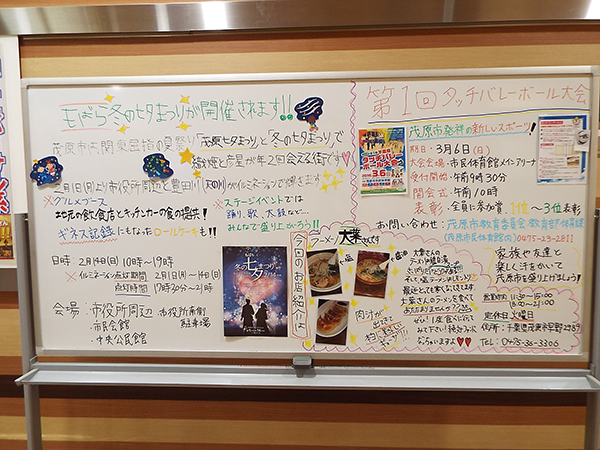 もばら冬の七夕まつりが開催されます!!
茂原市は関東屈指の夏祭り「茂原七夕まつり」と「冬の七夕まつり」で
織姫と彦星が年2回会える街です!
2月1日(月)より市役所周辺と豊田川
がイルミネーションで輝きます
※グルメブース
地元の飲食店とキッチンカーの食の提供!
ギネス記録にもなったロールケーキも!!
※ステージイベントでは
踊り、歌、太鼓など…
みんなで盛り上がろう!!
日時 2月14日(日) 10時〜19時
※イルミネーション点灯期間 2月1日(月)〜14日(日)
点灯時間 17時30分〜21時
会場 ・市役所周辺 ・市役所南側駐車場
・市民会館
・中央公民館
冬の七夕まつり
第1回 タッチバレーボール大会
タッチバレーボール大会
3.6
茂原市発祥の新しいスポーツ!
期日:3月6日(日)
大会会場:市民体育館メインアリーナ
受付開始:午前9時30分
開会式:午前10時
表彰:全員に参加賞 1位〜3位表彰
お問い合わせ:茂原市教育委員会教育部体育課
(茂原市民体育館内) 0475-23-2811
家族や友達と
楽しく汗をかいて
茂原市を盛り上げましょう!!
今回のお店紹介は
ラーメン 大葉
肉汁が
出てきて
ギョーザ!!
営業時間 11:30〜15:00
定休日 火曜日
TEL:0475-35-3306